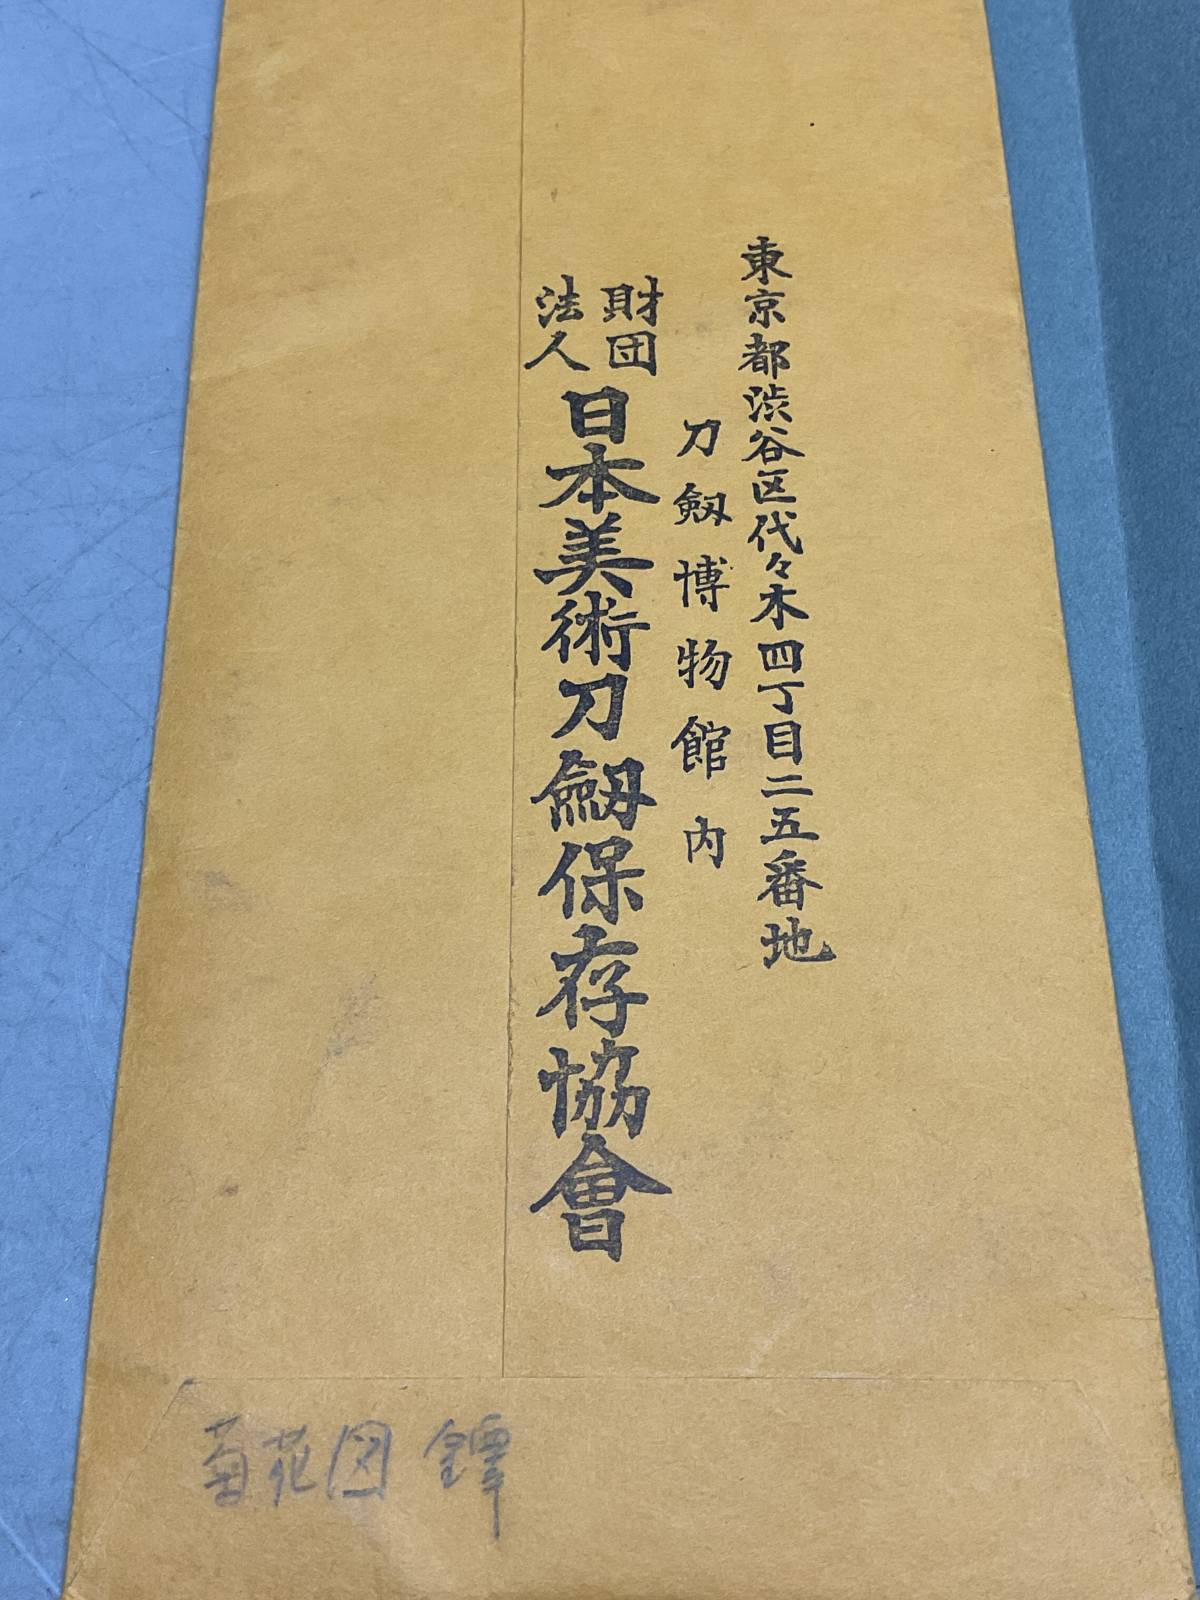 東京都渋谷区代々木四丁目二五番地
刀剱博物館内
財団
法人
日本美術刀剱保存協會
菊花図 鐔